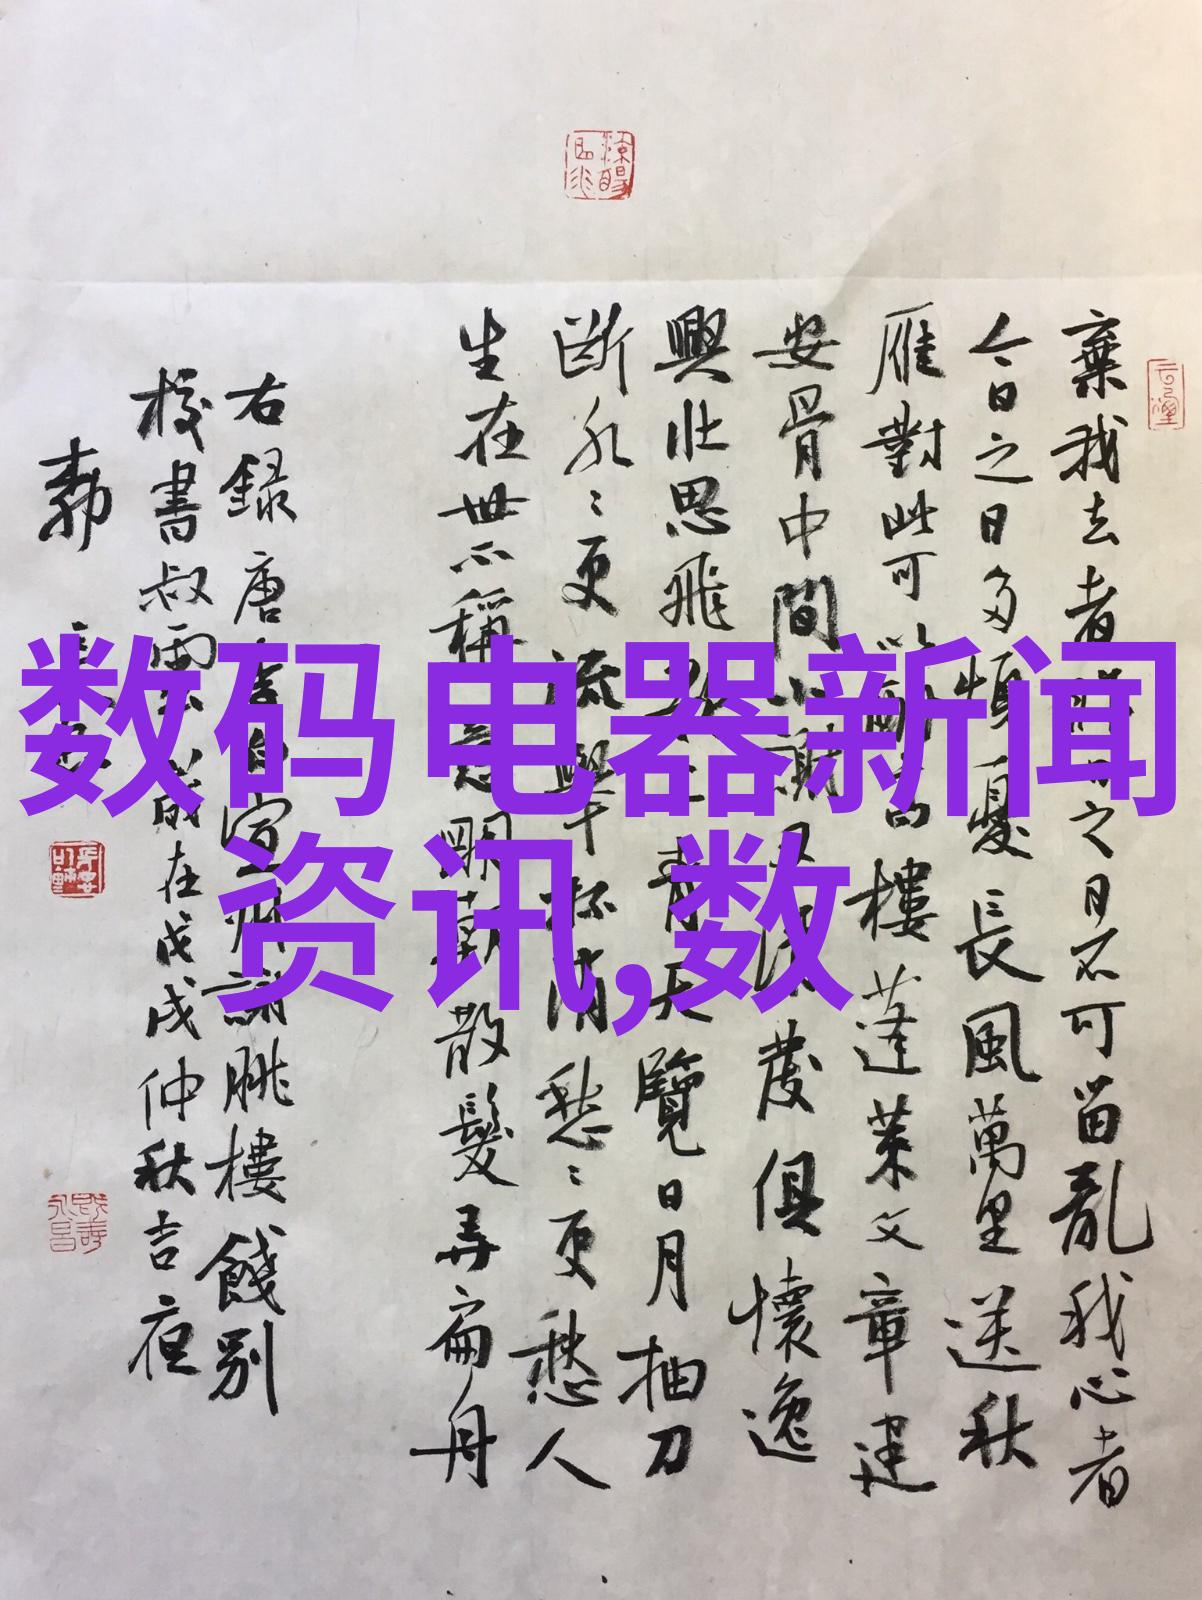 棄我去者昨日之日不可留亂我心者
今日之日多煩憂長風萬里送秋
雁對此可以酣高樓蓬萊文章建
安骨中間小謝又清發俱懷逸
興壯思飛欲上青天覽日月抽刀
斷水〻更流舉杯消愁〻更愁人
生在世不稱意明朝散髮弄扁舟
右録唐李白宣州謝朓樓餞别
校書叔雲歲在戊戌仲秋吉夜
数码电器新闻
资讯,数